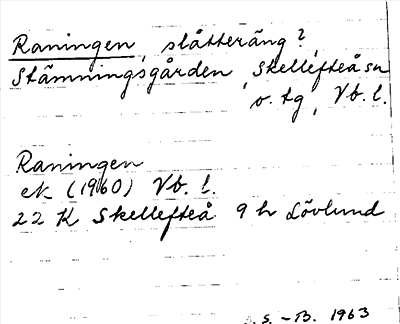 Raningen, slåtteräng?,
Stämningsgården, Skellefteå sn
o. tg, Vb. l.
Raningen
ek (1960) Vb. l.
22 K Skellefteå 9 h Lövlund
S. - B. 1963